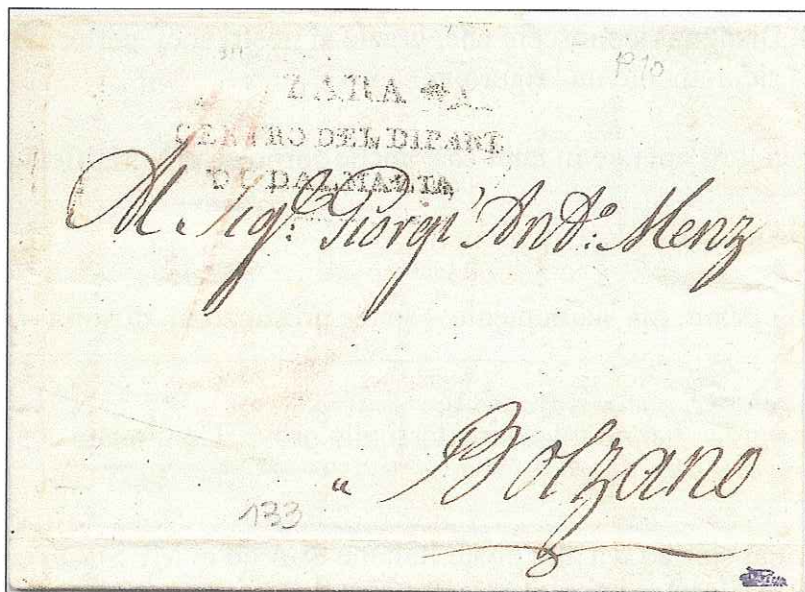 1810
ZARA
CENTRO DEL DIPART.
DI DALMAZIA
Al Sig.r Giorgi' Ant.o Menz
a Bolzano
133